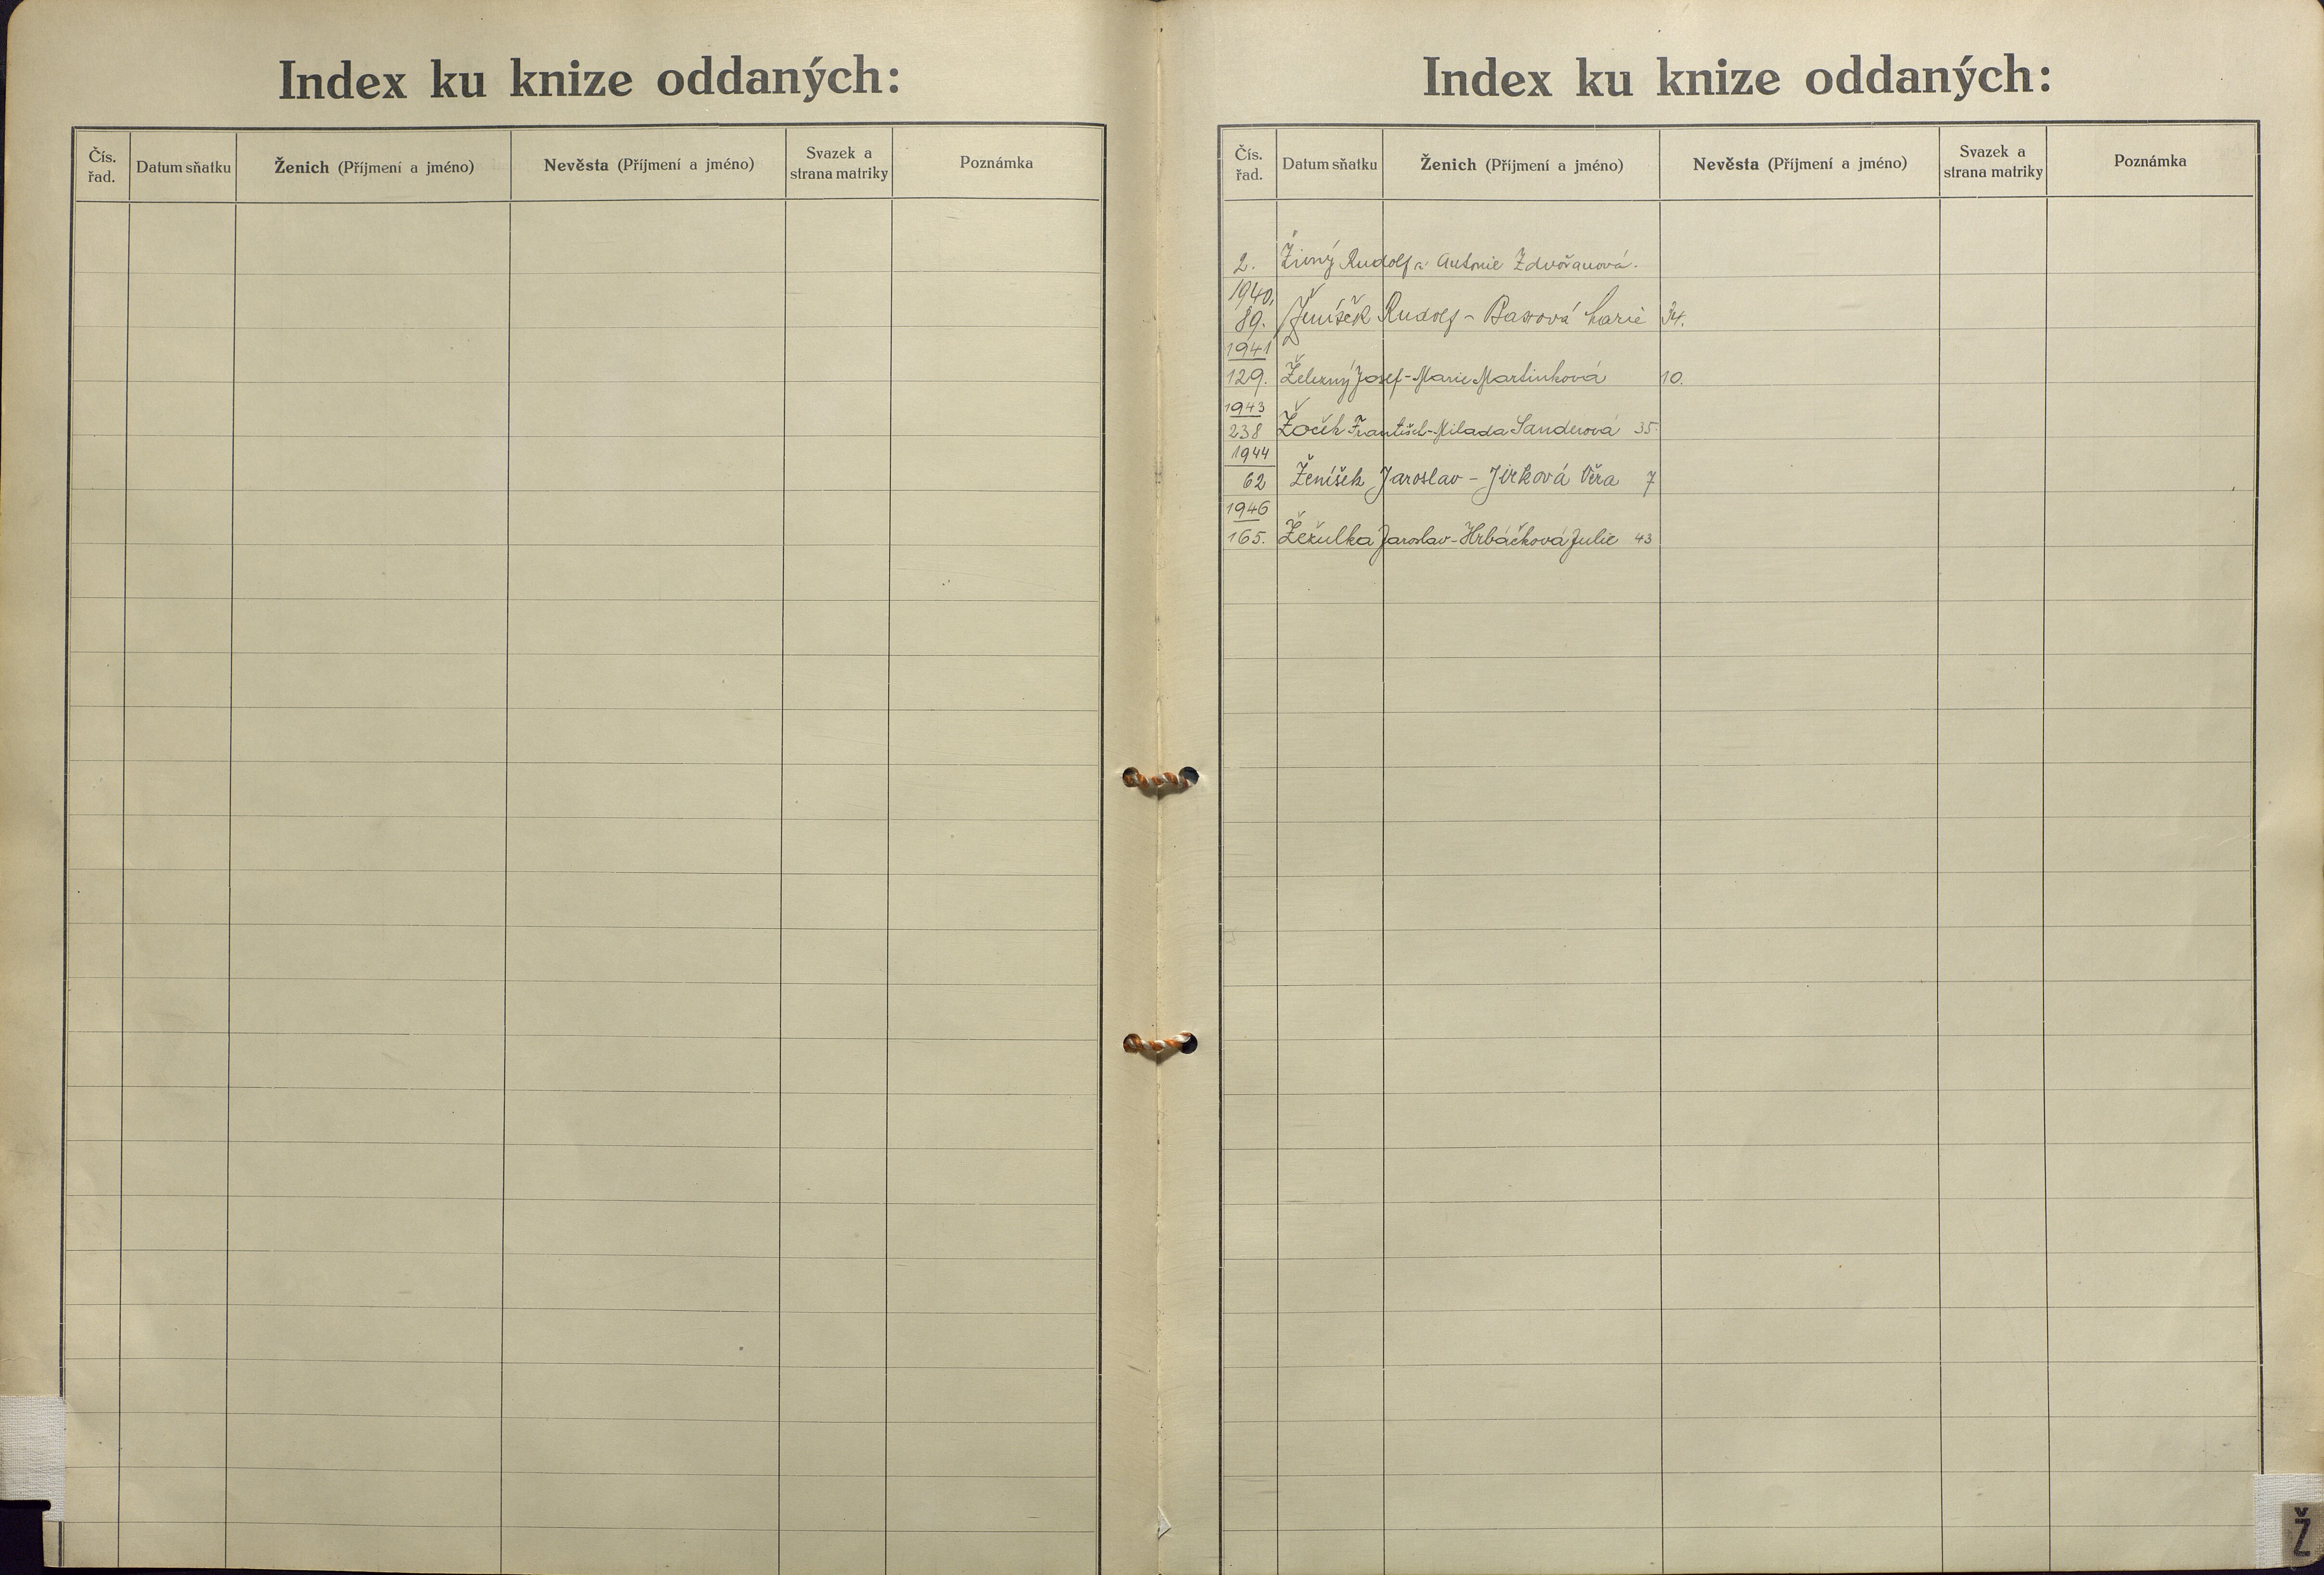 Index ku knize oddaných:
Čís. řad. Datum sňatku Ženich (Příjmení a jméno) Nevěsta (Příjmení a jméno) Svazek a strana matriky Poznámka
Index ku knize oddaných:
Čís. řad. Datum sňatku Ženich (Příjmení a jméno) Nevěsta (Příjmení a jméno) Svazek a strana matriky Poznámka
2. Živný Rudolf a Antonie Zdvořanová.
1940,
89. Ženíšek Rudolf - Marie 34.
1941
129. Železný Josef - Marie Martinková 10.
1943
238 Žoček František - Milada Sanderová 35
1944
62 Ženíšek Jaroslav - Jirková Věra 7
1946
165. Žežulka Jaroslav - Hrbáčková Julie 43
Ž